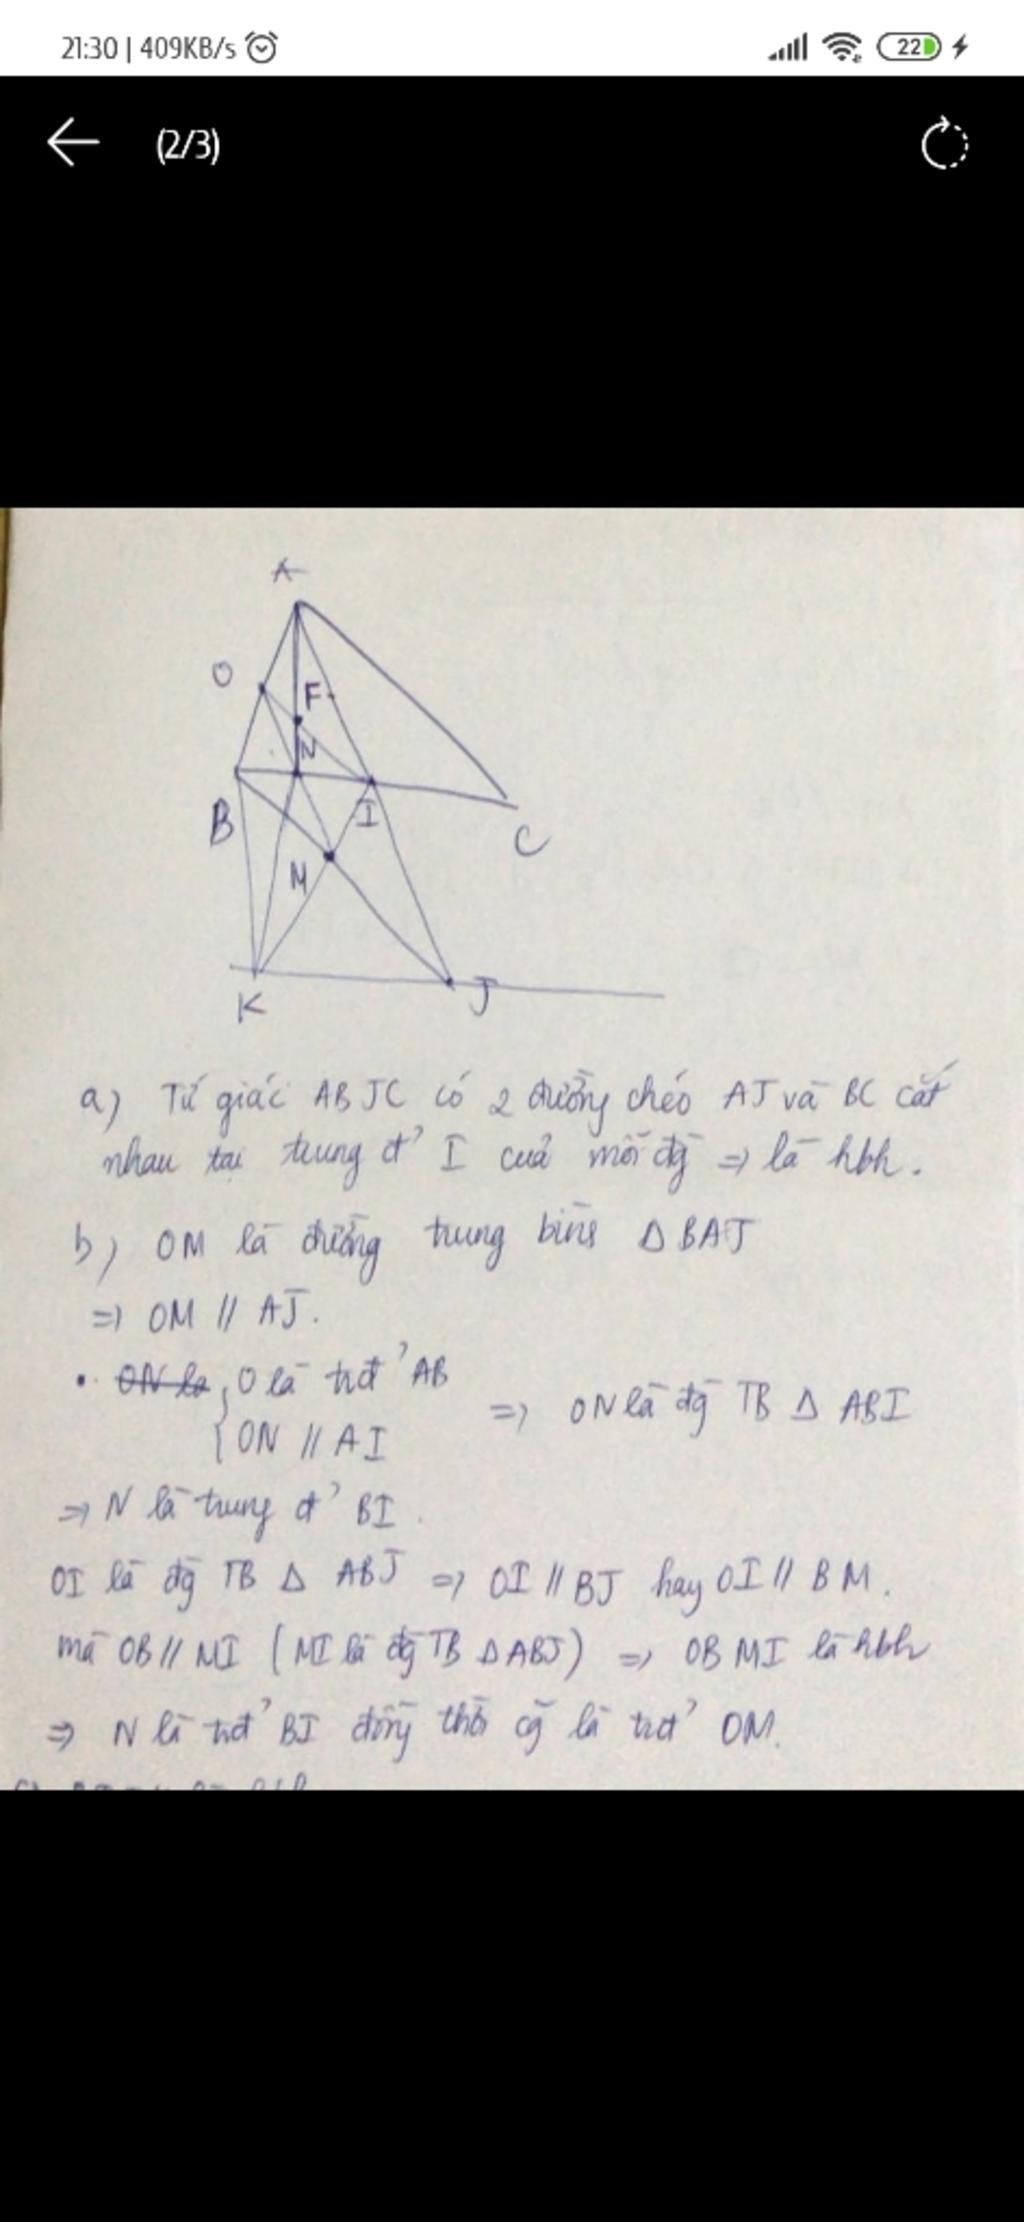 21:30 | 409KB/s
22
(2/3)
A
O
F
N
B
I
C
M
K
J
a) Tứ giác ABJC có 2 đường chéo AJ và BC cắt
nhau tại trung đ' I của mỗi đg => là hbh.
b) OM là đường trung bình Δ BAJ
=> OM // AJ.
O là trđ' AB
{ ON // AI
=> ON là đg TB Δ ABI
=> N là trung đ' BI.
OI là đg TB Δ ABJ => OI // BJ hay OI // BM.
mà OB // MI ( MI là đg TB Δ ABJ ) => OBMI là hbh
=> N là trđ' BI đồng thời cg là trđ' OM.